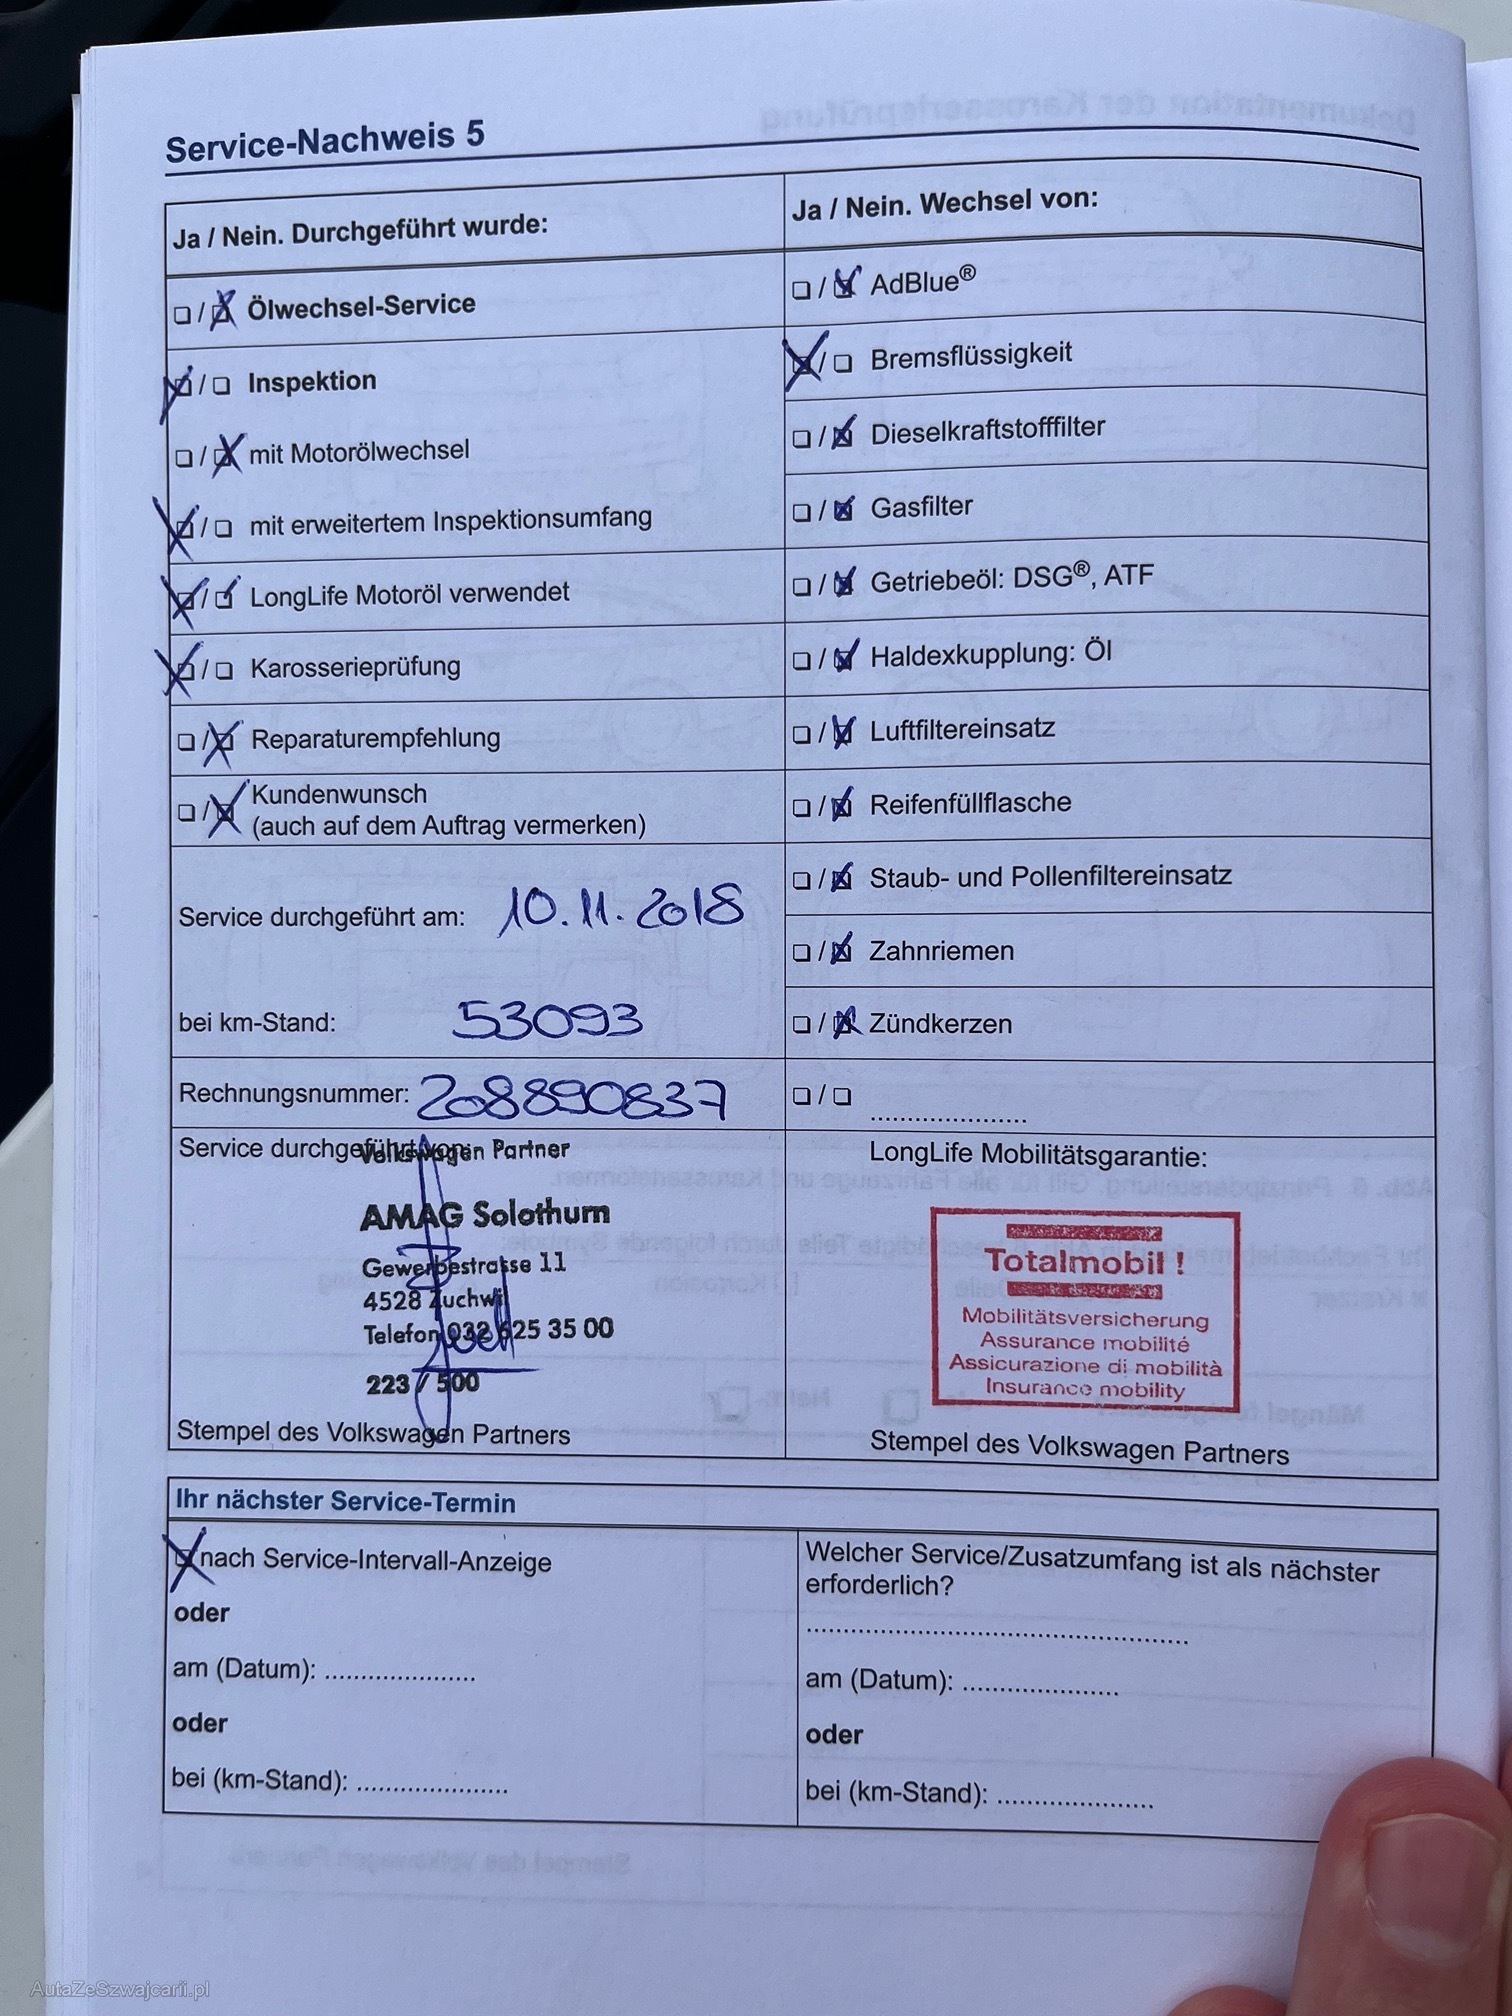 Service-Nachweis 5
Ja / Nein. Durchgeführt wurde:
☐ / ☒ Ölwechsel-Service
☒ / ☐ Inspektion
☐ / ☒ mit Motorölwechsel
☒ / ☐ mit erweitertem Inspektionsumfang
☒ / ☒ LongLife Motoröl verwendet
☒ / ☐ Karosserieprüfung
☐ / ☒ Reparaturempfehlung
☐ / ☒ Kundenwunsch
(auch auf dem Auftrag vermerken)
Service durchgeführt am: 10.11.2018
bei km-Stand: 53093
Rechnungsnummer: 208890837
Service durchgeführt von:
Volkswagen Partner
AMAG Solothurn
Gewerbestrasse 11
4528 Zuchwil
Telefon 032 625 35 00
223 / 500
Stempel des Volkswagen Partners
Ja / Nein. Wechsel von:
☐ / ☒ AdBlue®
☒ / ☐ Bremsflüssigkeit
☐ / ☒ Dieselkraftstofffilter
☐ / ☒ Gasfilter
☐ / ☒ Getriebeöl: DSG®, ATF
☐ / ☒ Haldexkupplung: Öl
☐ / ☒ Luftfiltereinsatz
☐ / ☒ Reifenfüllflasche
☐ / ☒ Staub- und Pollenfiltereinsatz
☐ / ☒ Zahnriemen
☐ / ☒ Zündkerzen
☐ / ☐ .....................
LongLife Mobilitätsgarantie:
Totalmobil !
Mobilitätsversicherung
Assurance mobilité
Assicurazione di mobilità
Insurance mobility
Stempel des Volkswagen Partners
Ihr nächster Service-Termin
☒ nach Service-Intervall-Anzeige
oder
am (Datum): .....................
oder
bei (km-Stand): .....................
Welcher Service/Zusatzumfang ist als nächster
erforderlich?
.....................................................
am (Datum): .....................
oder
bei (km-Stand): .....................
AutaZeSzwajcarii.pl